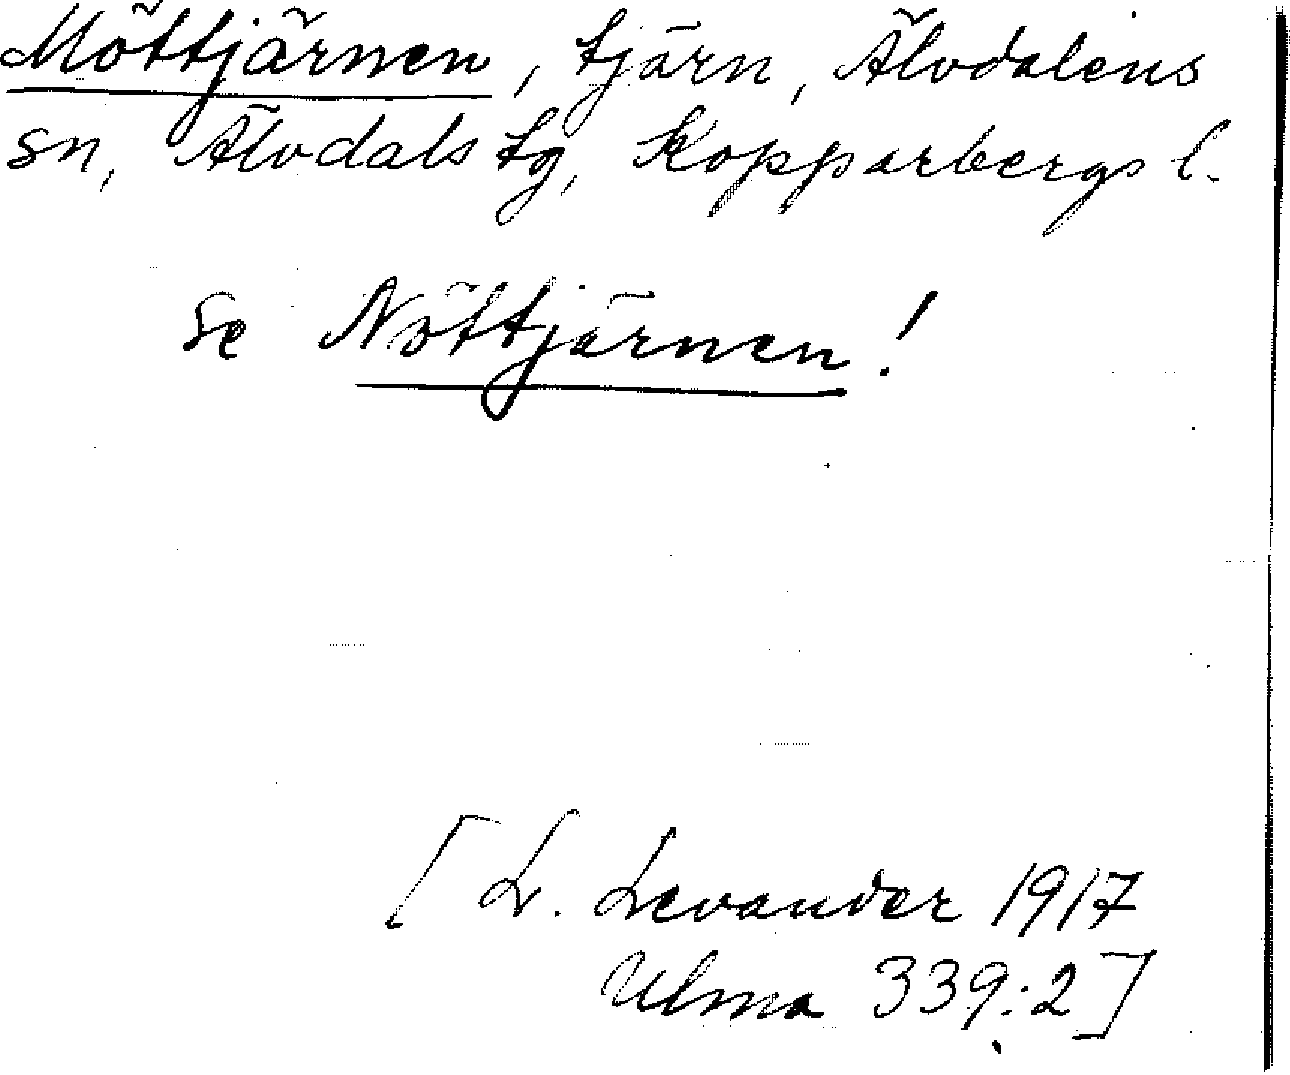 Möttjärnen, tjärn, Älvdalens
sn, Älvdals tg, Kopparbergs l.
se Nöttjärnen!
[L. Levander 1917
Ulma 339:2]